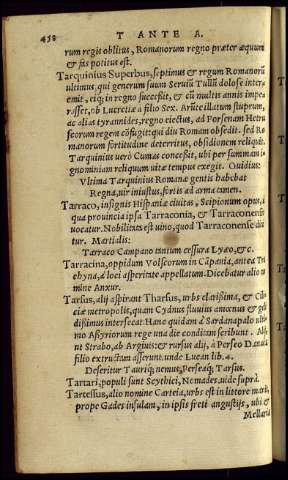 458 T ANTE A.
rum regis oblitus, Romanorum regno præter æquum
& fas potitus est.
Tarquinius Superbus, septimus & regum Romanorũ
ultimus, qui generum suum Seruiũ Tulliũ dolose inter=
emit, eiq; in regno successit, & cũ multis annis impe
rasset, ob Lucretiæ a filio Sex. Aruncte illatum stuprum,
ac alias tyrannides, regno eiectus, ad Porsenam Hetru
scorum regem cõfugit: qui diu Romam obsedit. sed Ro
manorum fortitudine deterritus, obsidionem reliquit.
Tarquinius uerò Cumas concessit, ubi per summam i=
gnominiam reliquum uitæ tempus exegit. Ouidius:
Vltima Tarquinius Romanæ gentis habebat
Regna, uir iniustus, fortis ad arma tamen.
Tarraco, insignis Hispaniæ ciuitas, Scipionum opus, à
qua prouincia ipsa Tarraconia, & Tarraconensis
uocatur. Nobilitata est uino, quod Tarraconense dici
tur. Martialis:
Tarraco Campano tantum cessura Lyæo, &c.
Tarracina, oppidum Volscorum in Cãpania, antea Tra
chyna, à loci asperitate appellatum. Dicebatur alio no
mine Anxur.
Tarsus, alij aspirant Tharsus, urbs clarissima, & Cili=
ciæ metropolis, quam Cydnus fluuius amœnus & geli
dissimus intersecat. Hanc quidam à Sardanapalo ulti=
mo Assyriorum rege una die conditam scribunt. Alij,
nt Strabo, ab Argiuis: & rursus alij, à Perseo Danaës
filio extructam asserunt. unde Lucan lib. 4.
Deseritur Tauriq; nemus, Perseaq; Tarsus.
Tartari, populi sunt Scythici, Nomades. uide suprà.
Tartessus, alio nomine Carteia, urbs est in littore maris,
prope Gades insulam, in ipsis freti angustijs, ubi &
Mellaria